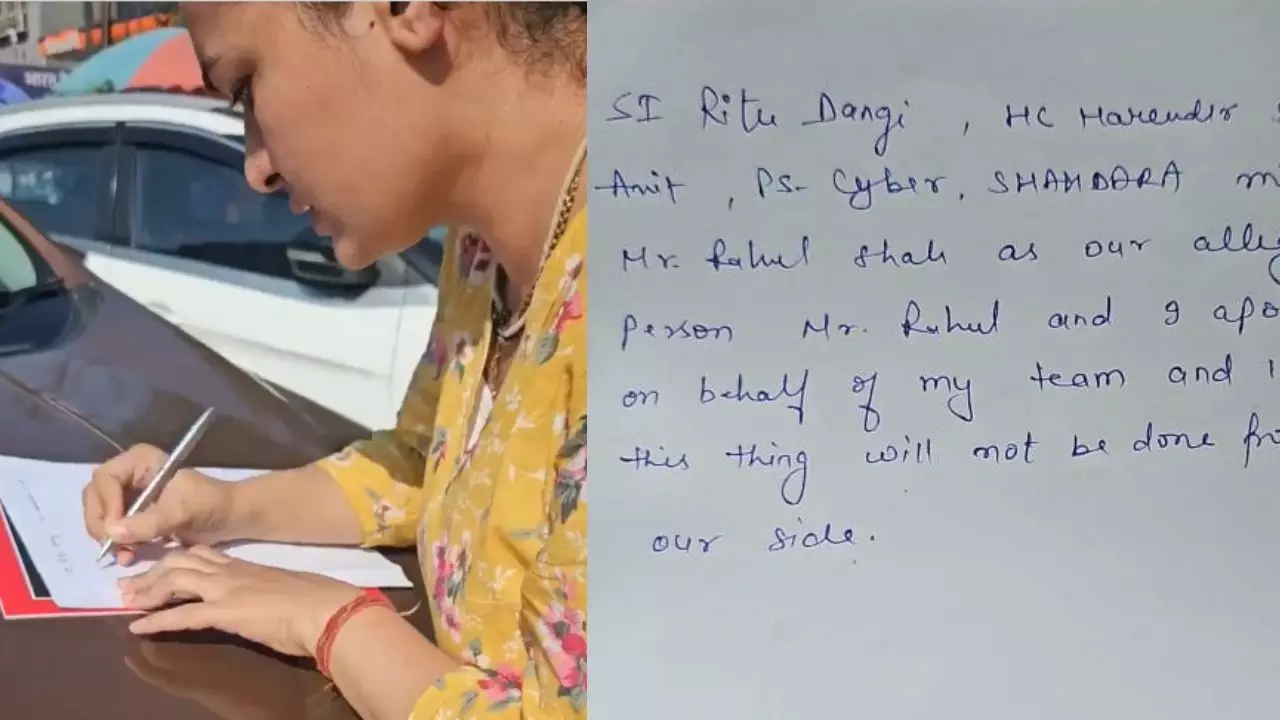 SI Ritu Dangi , HC Harender
Amit , PS- Cyber, SHAHDARA m
Mr. Rahul Shah as our alleg
person Mr. Rahul and I apo
on behalf of my team and
this thing will not be done fro
our side.